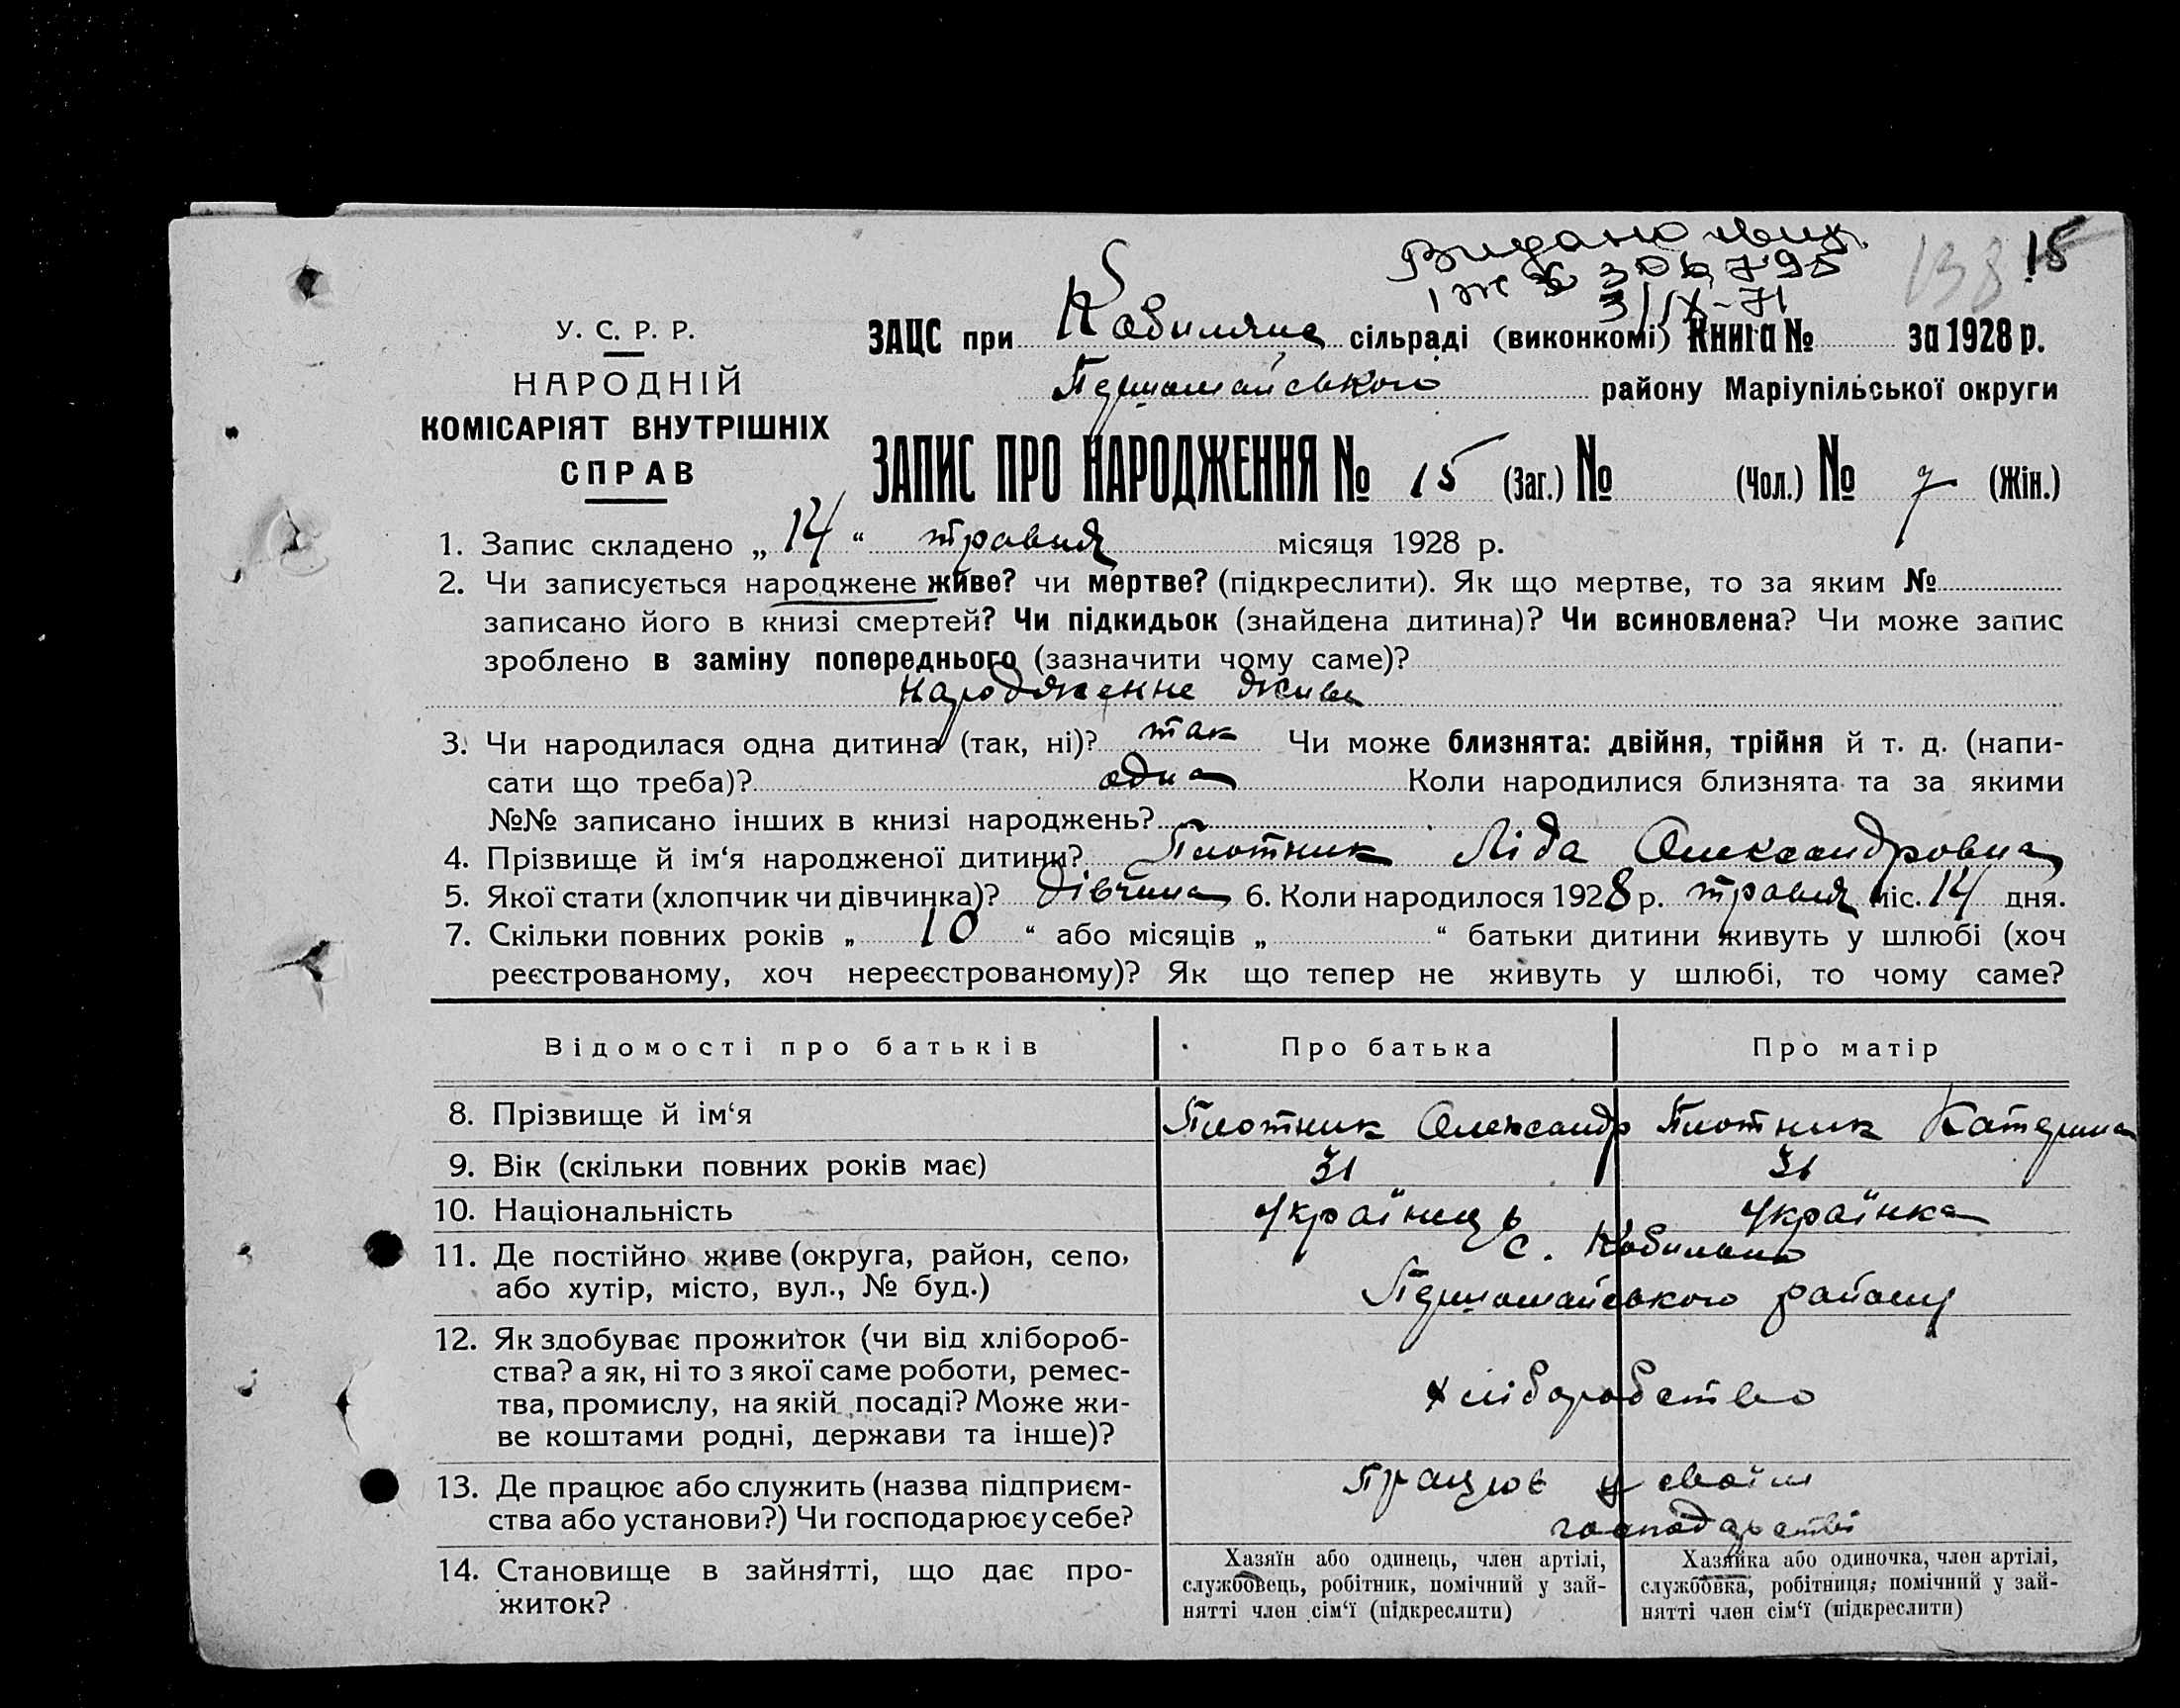 Видано свид.
138 15
І ЖС № 306795
3/ІХ-71
У. С. Р. Р.
НАРОДНІЙ
КОМІСАРІЯТ ВНУТРІШНІХ
СПРАВ
ЗАЦС при Кобиляне сільраді (виконкомі) Книга № за 1928 р.
Першомайського району Маріупільської округи
ЗАПИС ПРО НАРОДЖЕННЯ № 15 (Заг.) № (Чол.) № 7 (Жін.)
1. Запис складено „ 14 “ травня місяця 1928 р.
2. Чи записується народжене живе? чи мертве? (підкреслити). Як що мертве, то за яким №
записано його в книзі смертей? Чи підкидьок (знайдена дитина)? Чи всиновлена? Чи може запис
зроблено в заміну попереднього (зазначити чому саме)?
народженне живе
3. Чи народилася одна дитина (так, ні)? так Чи може близнята: двійня, трійня й т. д. (напи-
сати що треба)? одна Коли народилися близнята та за якими
№№ записано інших в книзі народжень?
4. Прізвище й ім‘я народженої дитини? Плотник Ліда Олександровна
5. Якої стати (хлопчик чи дівчинка)? дівчина 6. Коли народилося 1928 р. травня міс. 14 дня.
7. Скільки повних років „ 10 “ або місяців „ “ батьки дитини живуть у шлюбі (хоч
реєстрованому, хоч нереєстрованому)? Як що тепер не живуть у шлюбі, то чому саме?
Відомості про батьків Про батька Про матір
8. Прізвище й ім‘я Плотник Олександр Плотник Катерина
9. Вік (скільки повних років має) 31 31
10. Національність Українець Українка
11. Де постійно живе (округа, район, село, с. Кобиляно
або хутір, місто, вул., № буд.) Першомайського району
12. Як здобуває прожиток (чи від хлібороб-
ства? а як, ні то з якої саме роботи, ремес-
тва, промислу, на якій посаді? Може жи- хліборобство
ве коштами родні, держави та інше)?
13. Де працює або служить (назва підприєм- Працює у своїм
ства або установи?) Чи господарює у себе? господарстві
14. Становище в зайнятті, що дає про-
житок?
Хазяїн або одинець, член артілі,
службовець, робітник, помічний у зай-
нятті член сім‘ї (підкреслити)
Хазяйка або одиночка, член артілі,
службовка, робітниця, помічний у зай-
нятті член сім‘ї (підкреслити)